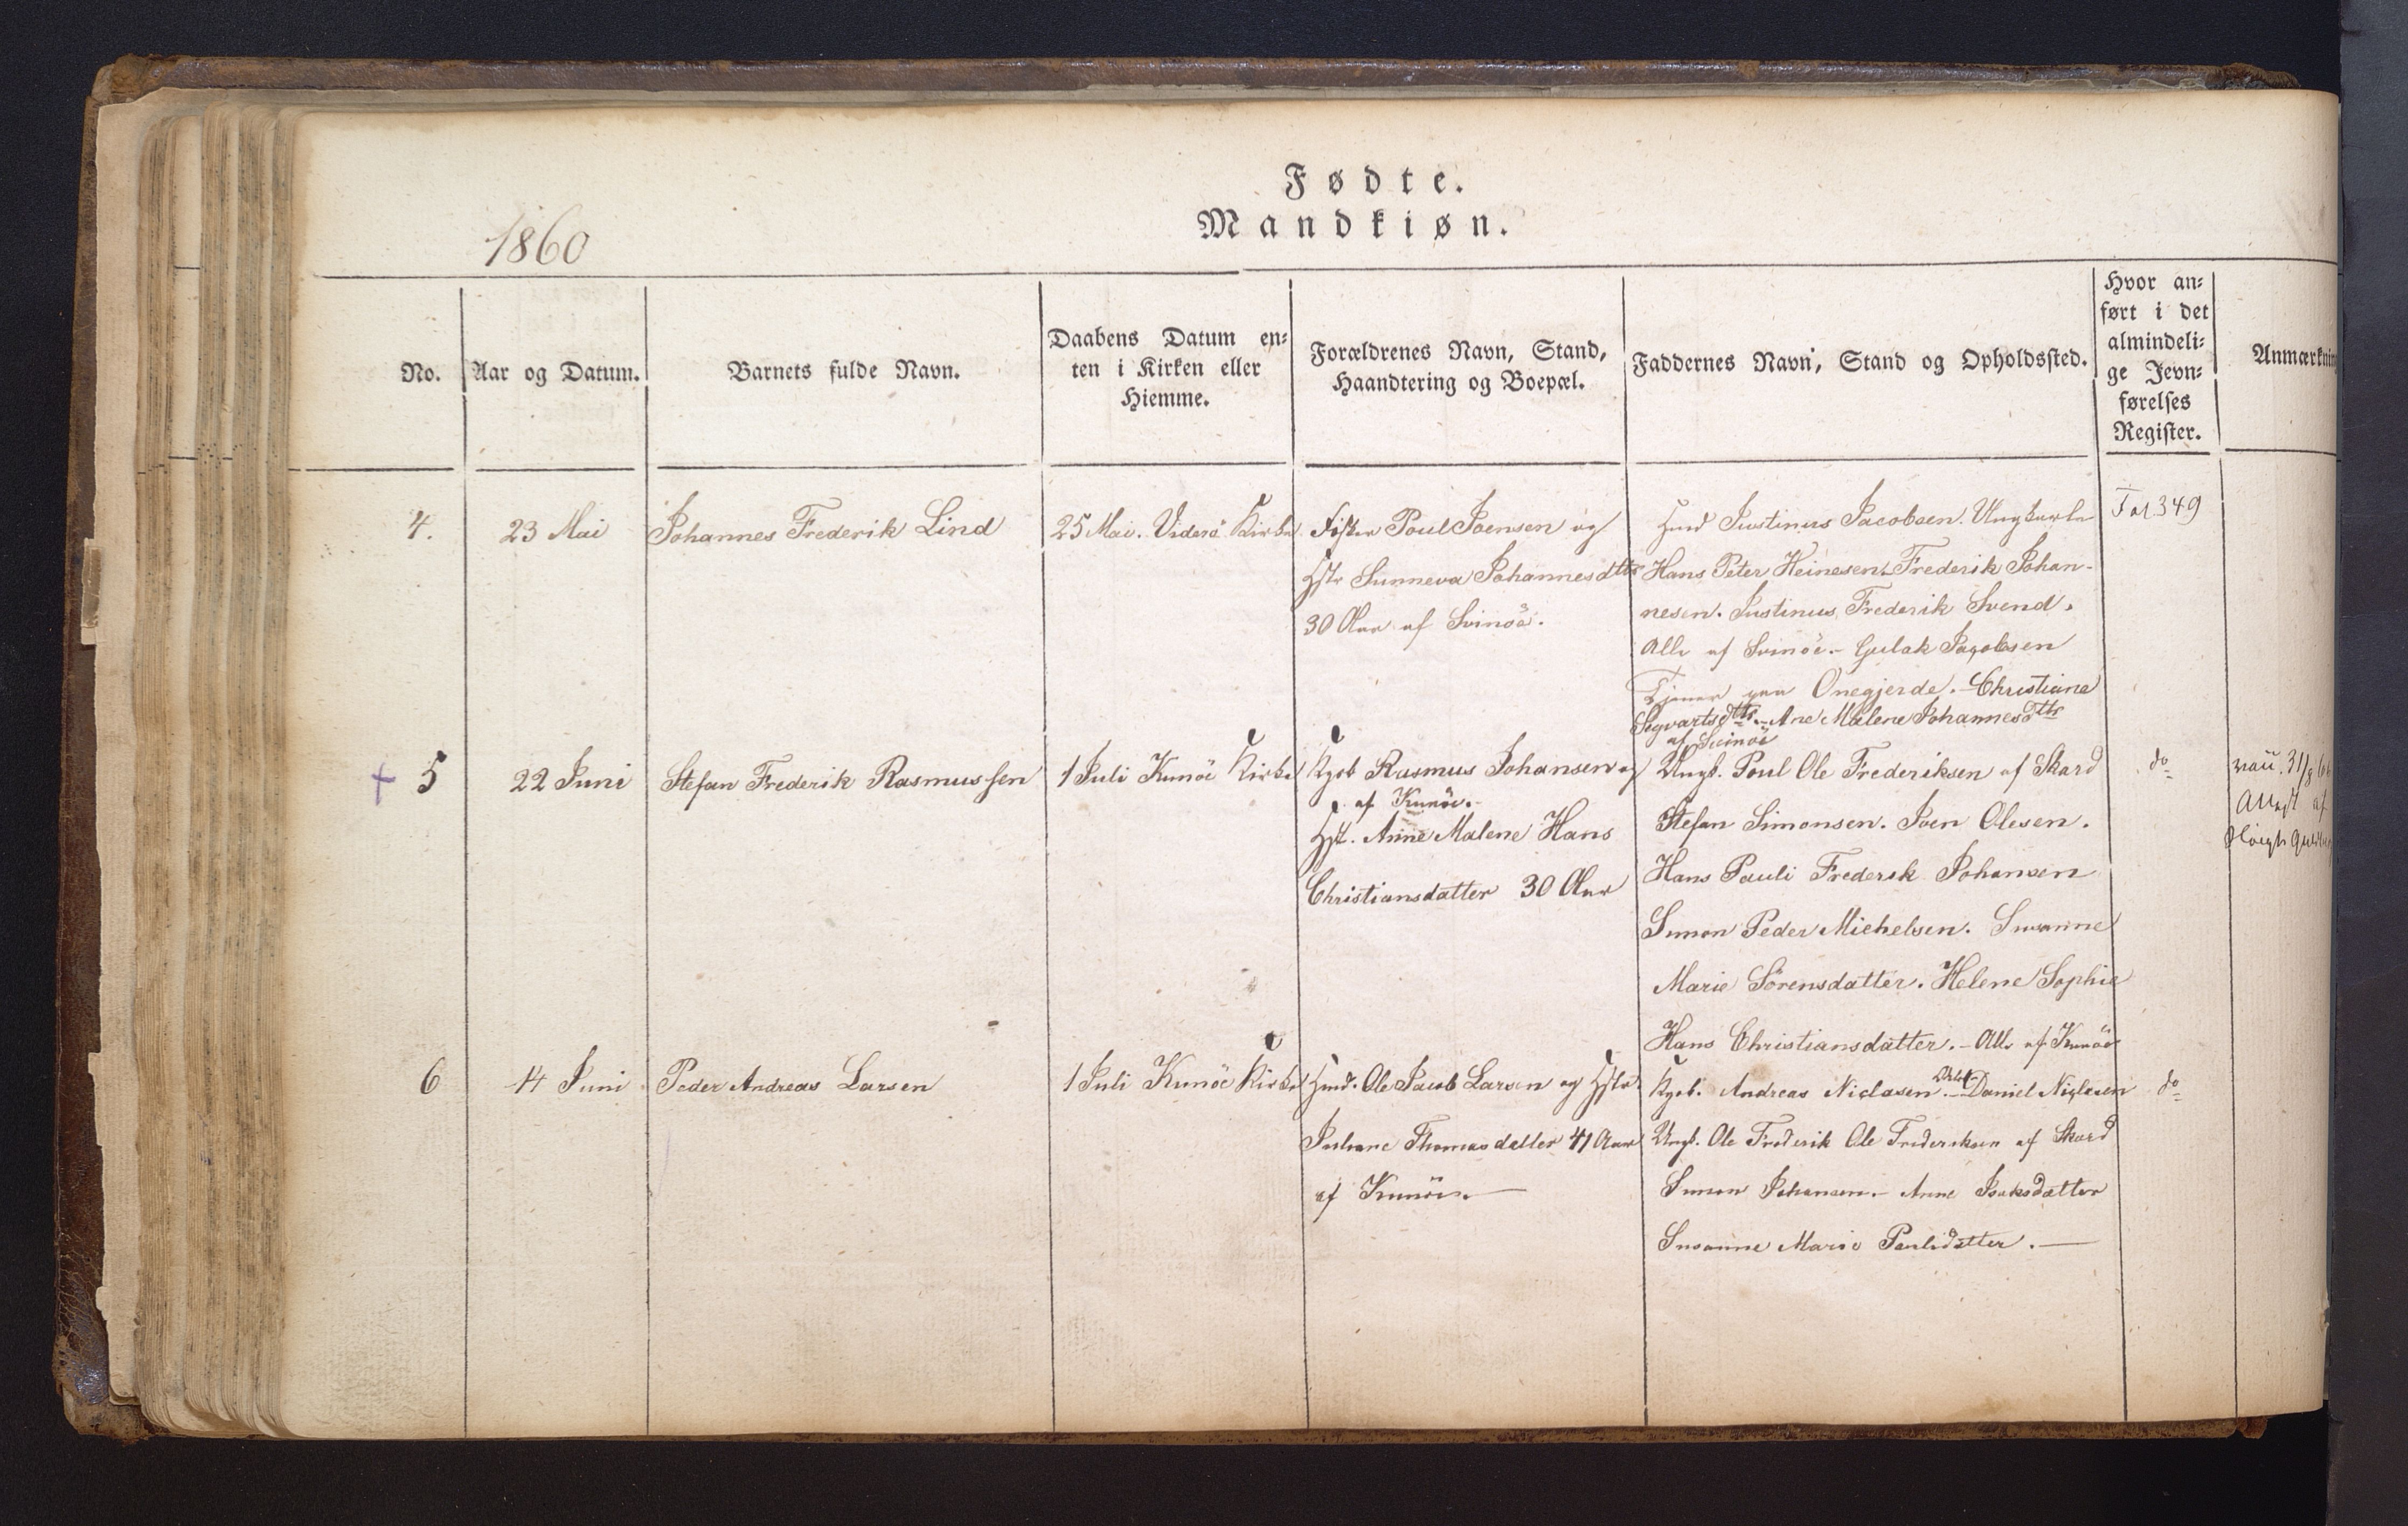 Fødte.
Mandkiøn.
1860
No.
Aar og Datum.
Barnets fulde Navn.
Daabens Datum en=
ten i Kirken eller
Hiemme.
Forældrenes Navn, Stand,
Haandtering og Boepæl.
Faddernes Navn, Stand og Opholdssted.
Hvor an=
ført i det
almindeli=
ge Jevn=
førelses
Register.
Anmærknin
4.
23 Mai
Johannes Frederik Lind
25 Mai. Viderö Kirke
Fisker Poul Joensen og
Hstr Sunneva Johannesdttr
30 Aar af Svinöe.
Hmd Justinus Jacobsen. Ungkarle
Hans Peter Heinesen. Frederik Johan-
nesen. Justinus Frederik Svend.
Alle af Svinöe. - Gulak Jacobsen
Tjener paa Onegjerde. - Christiane
Segvartsdttr. - Ane Malene Johannesdttr
af Svinöe
Fol 349
5
22 Juni
Stefan Frederik Rasmussen
1 Juli Kunöe Kirke
Kgsb Rasmus Johansen og
af Kunöe. -
Hst. Anne Malene Hans
Christiansdatter 30 Aar
Ungk. Poul Ole Frederiksen af Skard
Stefan Simonsen. Joen Olesen.
Hans Pauli Frederik Johansen
Simon Peder Michelsen. Susanne
Marie Sörensdatter. Helene Sophie
Hans Christiansdatter. - Alle af Kunöe
do
Attest af
6
14 Juni
Peder Andreas Larsen
1 Juli Kunöe Kirke
Hmd. Ole Jacob Larsen og Hstr
Juliane Thomasdatter 41 Aar
af Kunöe. -
Kgsb. Andreas Niclasen. - Daniel Niclasen
Ungk. Ole Frederik Ole Frederiksen af Skard
Simon Johansen. - Anne Isaksdatter
Susanne Marie Poulsdatter. -
do